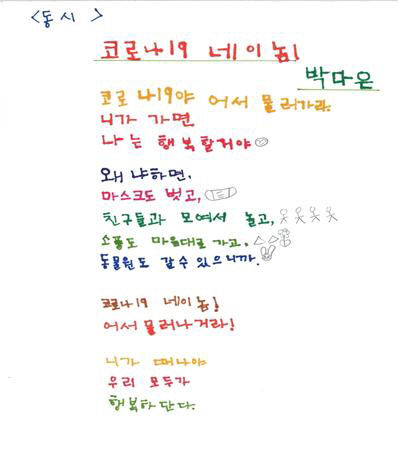 <동시>
코로나19 네이놈!
박다온
코로나19야 어서 물러가라.
니가 가면
나는 행복할거야
왜냐하면,
마스크도 벗고,
친구들과 모여서 놀고,
소풍도 마음대로 가고,
동물원도 갈수 있으니까.
코로나19 네이놈!
어서 물러나거라!
니가 떠나야
우리 모두가
행복하단다.